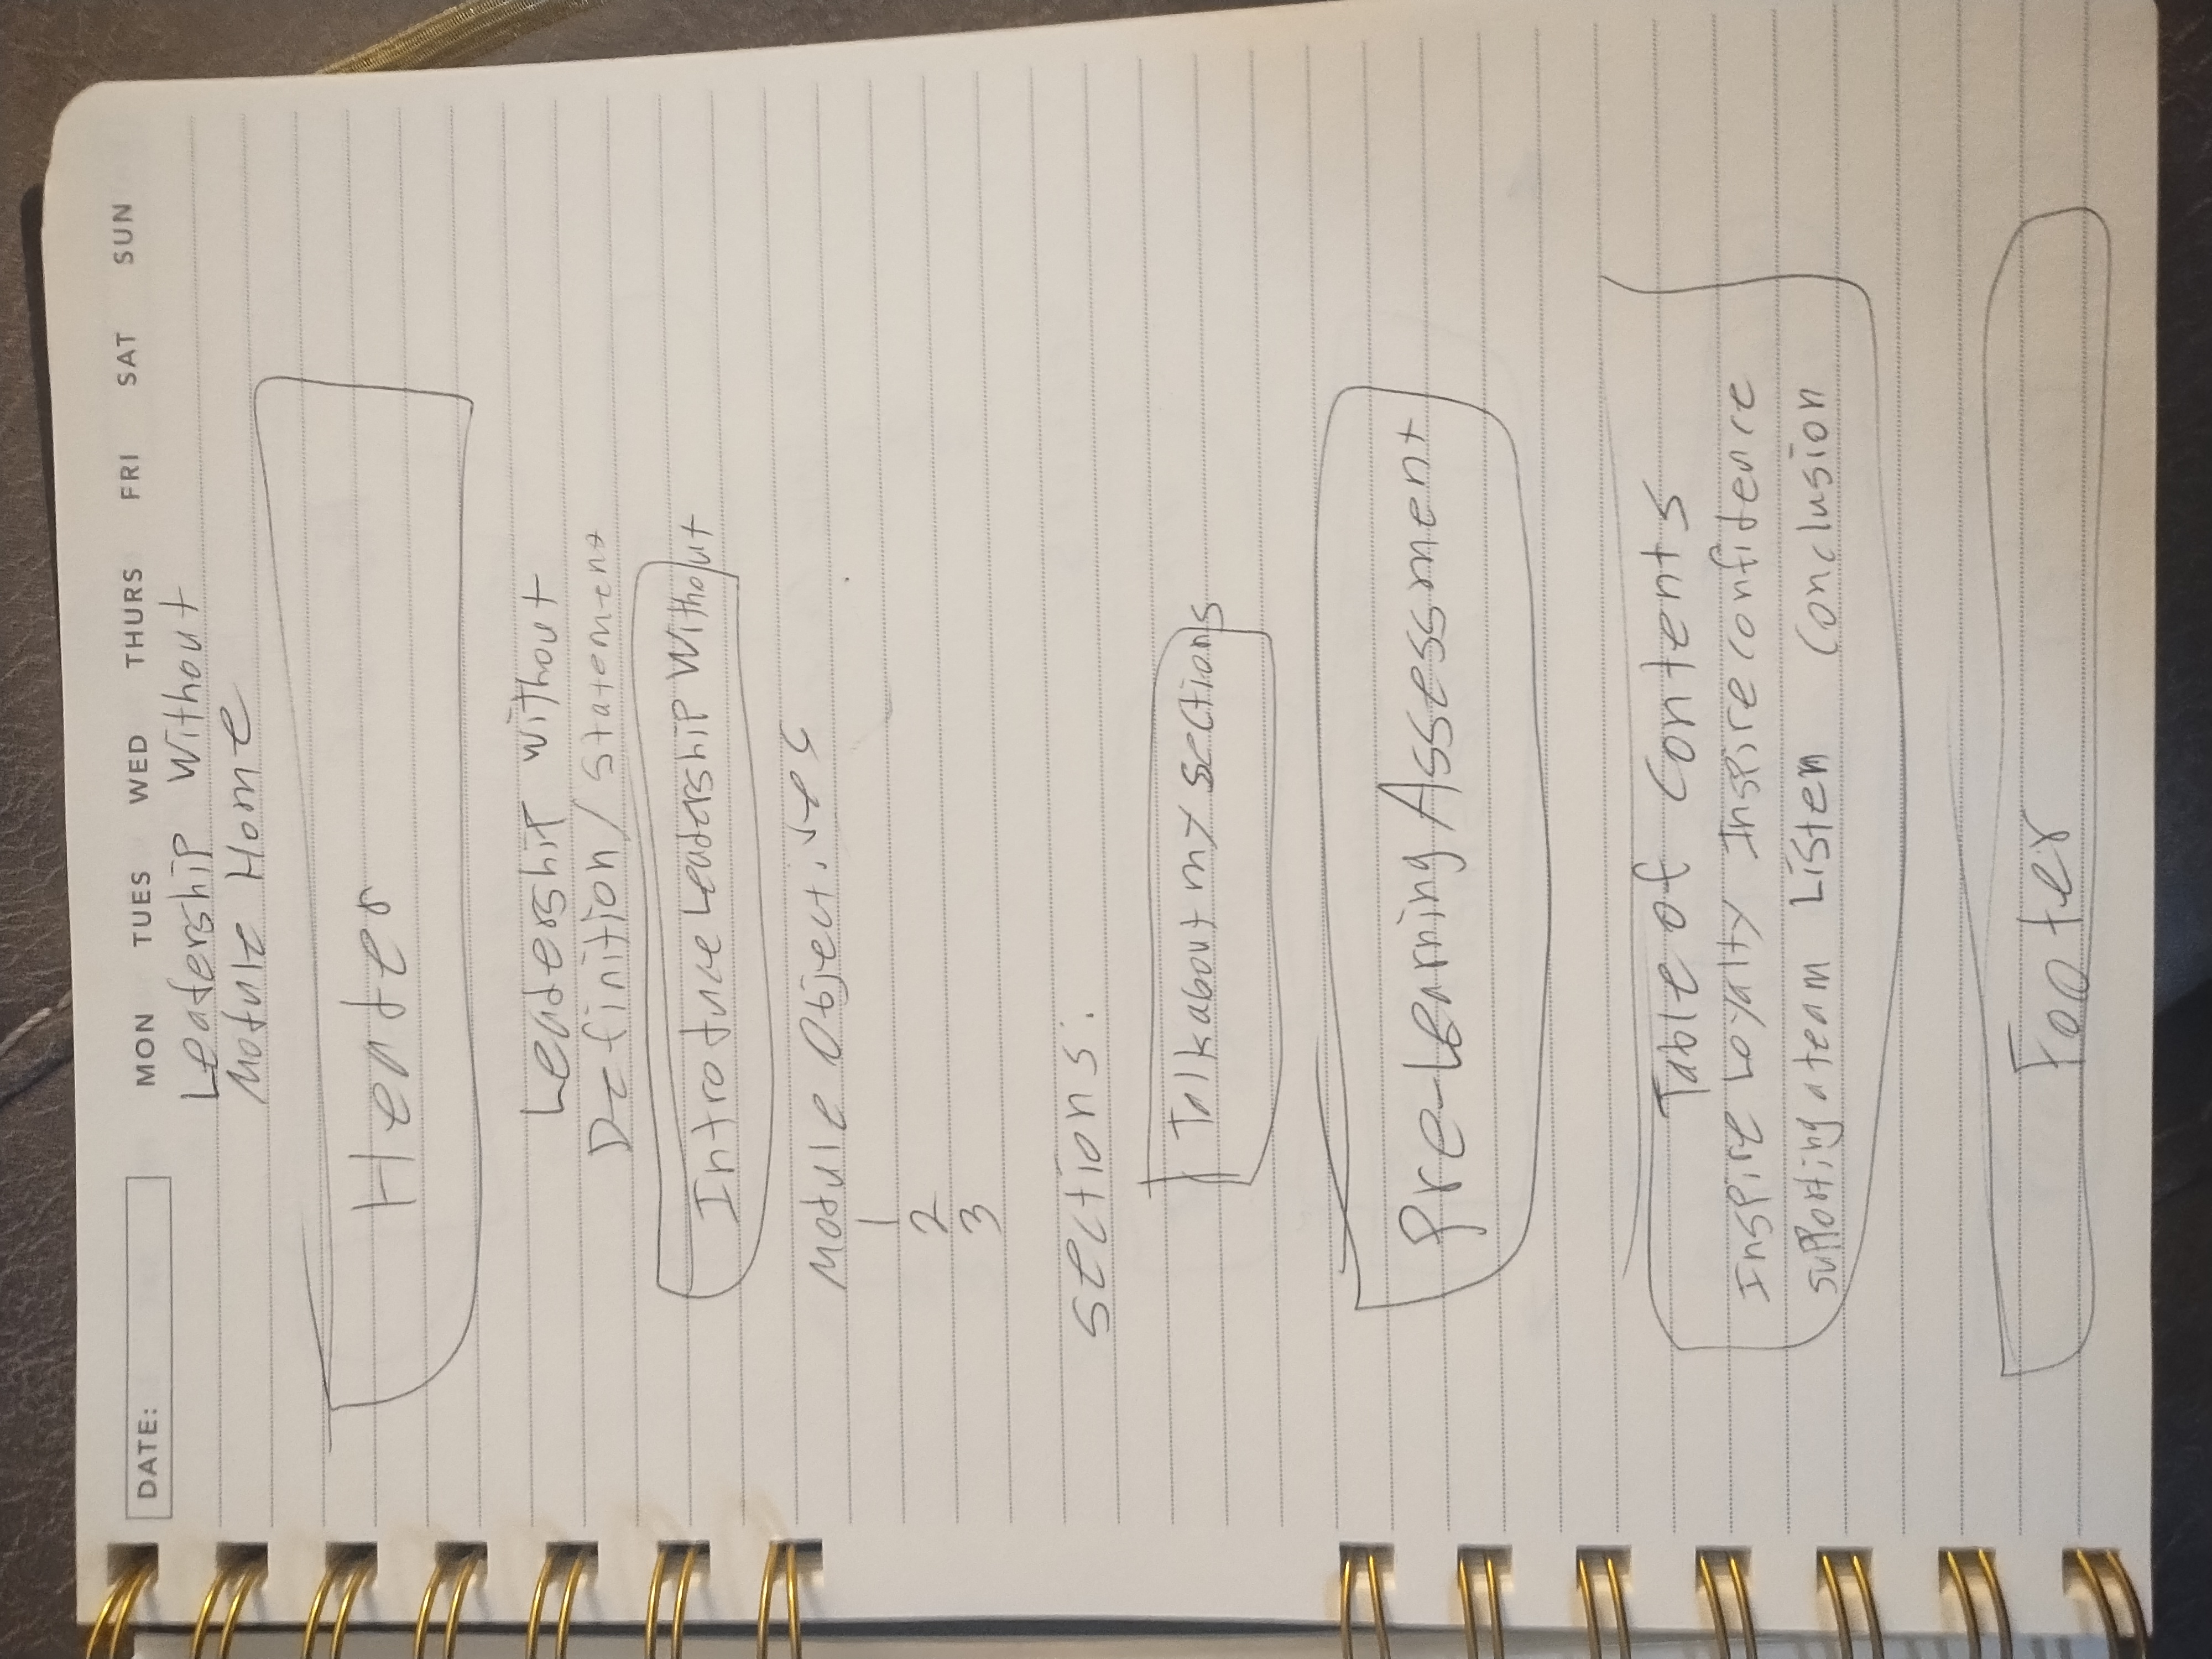 DATE: MON TUES WED THURS FRI SAT SUN
Leadership Without
Module Home
Header
Leadership Without
Definition/Statement
Introduce Leadership Without
Module Objectives
1
2
3
Sections:
Talk about my sections
Pre-Learning Assessment
Table of Contents
Inspire Loyalty Inspire confidence
supporting a team Listen Conclusion
Footer